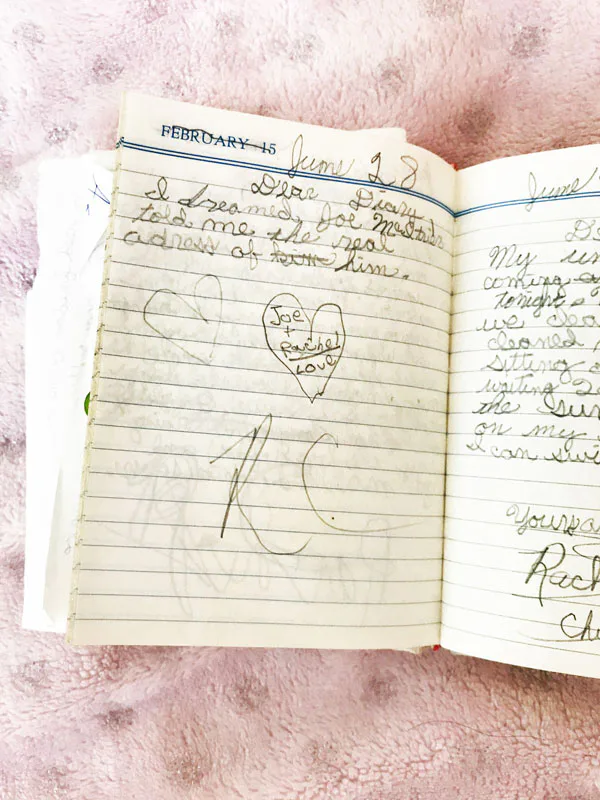 FEBRUARY 15
June 28
Dear Diary
I dreamed Joe
told me the real
adress of him.
Joe
+
Rachel
LOVE
RC
June
My
coming
tonight
we
cleaned
sitting
writing
the sun
on my
I can
Yours